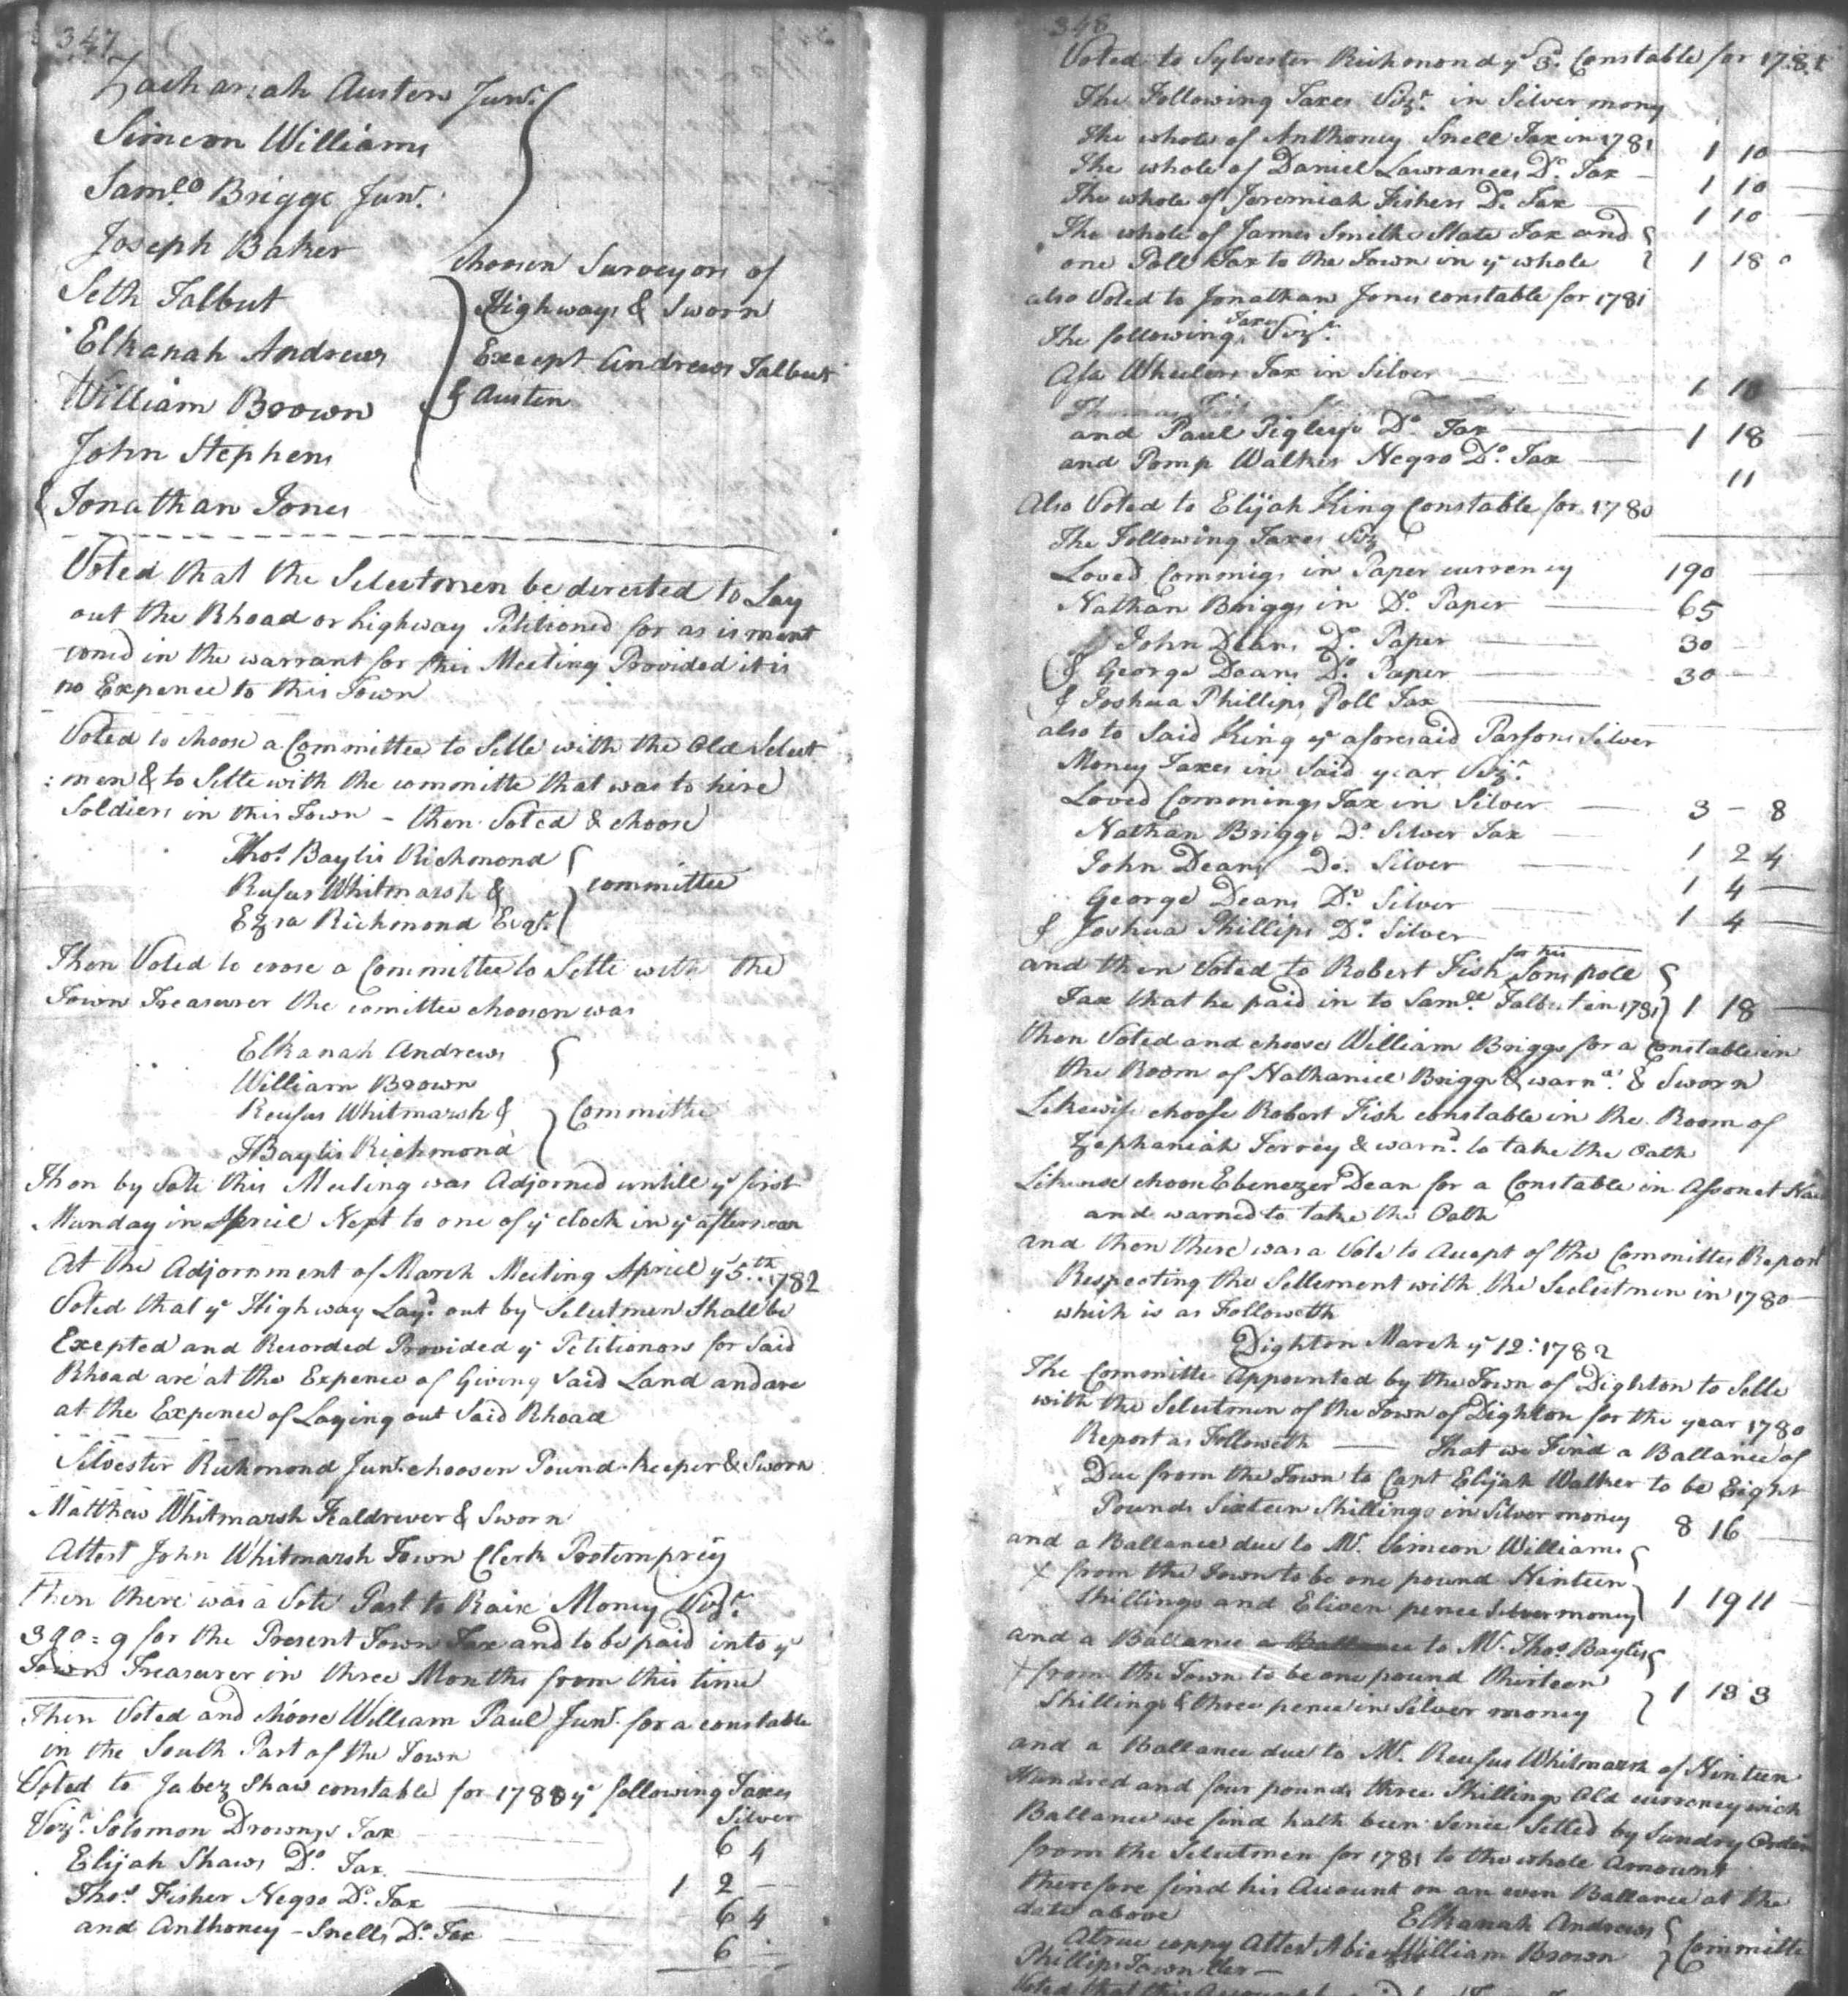 347
Zachariah Austen Junr.
Simeon Williams
Samll. Briggs Junr.
Joseph Baker
Seth Talbut
Elkanah Andrews
William Brown
John Stephens
& Jonathan Jones
choosen Surveyors of
Highways & Sworn
Except Andrews Talbut
& Austen
Voted that the Selectmen be directed to Lay
out the Rhoad or highway Petitioned for as is ment
ioned in the warrant for this Meeting Provided it is
no Expence to this Town
Voted to choose a Committee to Settle with the Old Select
:men & to Settle with the committe that was to hire
Soldiers in this Town - then Voted & choose
Thos. Baylis Richmond
Rufus Whitmarsh &
Ezra Richmond Esqr.
committee
Then Voted to coose a Committee to Settle with the
Town Treasurer the comittee choosen was
Elkanah Andrews
William Brown
Reufus Whitmarsh &
TBaylis Richmond
Committee
Then by Vote this Meeting was Adjorned untill ye first
Munday in April Next to one of ye clock in ye afternoon
At the Adjornment of March Meeting April ye 5th. 1782
Voted that ye Highway Layd. out by Selectmen Shall be
Excepted and Recorded Provided ye Petitionors for Said
Rhoad are at the Expence of Giving Said Land and are
at the Expence of Laying out Said Rhoad
Silvester Richmond Junr. choosen Pound-keeper & Sworn
Matthew Whitmarsh Fealdrever & Sworn
Attest John Whitmarsh Town Clerk Protemprey
Then there was a Vote Past to Raise Money Vizt.
390=9 for the Present Town Tax and to be paid into ye
Town Treasurer in three Months from this time
Then Voted and Choose William Paul Junr. for a constable
in the South Part of the Town
Voted to Jabez Shaw constable for 1780 ye following Taxes
Silver
Vizt. Solomon Drowns Tax 6 4
Elijah Shaws Do. Tax 1 2 -
Thos. Fisher Negro Do. Tax 6 4
and Anthoney - Snells Do. Tax 6 -
348
Voted to Sylvester Richmond ye 3d. Constable for 1781
The Following Taxes Vizt. in Silver mony
the whole of Anthoney Snell Tax in 1781 1 10 -
The whole of Daniel Lawrances Do. Tax - 1 10 -
The whole of Jeremiah Fishers Do. Tax 1 10 -
The whole of James Smiths State Tax and
one Poll Tax to the Town in ye whole 1 18 0
also Voted to Jonathan Jones constable for 1781
the following Taxes Vizt.
Asa Wheelers Tax in Silver 1 10
and Paul Pigleys Do. Tax 1 18
and Pomp Walker Negro Do. Tax 11
Also Voted to Elijah King Constable for 1780
The Following Taxes Viz
Loved Commigs in Paper currency 190
Nathan Briggs in Do. Paper 65
John Deans Do. Paper 30
& George Deans Do. Paper 30
& Joshua Phillips Poll Tax
also to Said King ye aforesaid Parsons Silver
Money Taxes in Said year Vizt.
Loved Commings Tax in Silver 3 - 8
Nathan Briggs Do. Silver Tax 1 2 4
John Deans Do. Silver 1 4 -
George Deans Do. Silver 1 4 -
& Joshua Phillips Do. Silver
and then Voted to Robert Fish for his Sons pole
Tax that he paid in to Samll. Talbut in 1781 1 18 -
then Voted and choose William Briggs for a Constable in
the Room of Nathaniel Briggs & warnd. & Sworn
Likewise choose Robert Fish constable in the Room of
Zephaniah Torrey & warnd. to take the Oath
Likewise choosen Ebenezer Dean for a Constable in Assonet
and warned to take the Oath
and then there was a Vote to Accept of the Committes Report
Respecting the Settlement with the Seelectmen in 1780
which is as Followeth
Dighton March ye 12: 1782
The Committe Appointed by the Town of Dighton to Settle
with the Selectmen of the Town of Dighton for the year 1780
Report as Followeth - that we Find a Ballance of
Due from the Town to Capt Elijah Walker to be Eight
Pounds Sixteen Shillings in Silver money 8 16 -
and a Ballance due to Mr. Simeon Williams
x from the Town to be one pound Ninteen
Shillings and Eleven pence Silver money 1 19 11
and a Ballance to Mr. Thos. Baylis
x from the Town to be one pound thirteen
Shillings & three pence in Silver money 1 13 3
and a Ballance due to Mr. Reufus Whitmarsh of Ninteen
Hundred and four pounds three Shillings Old currency wich
Ballance we find hath been Sence Setled by Sundry Orders
from the Selectmen for 1781 to the whole Amount
therefore find his Account on an even Ballance at the
date above
Elkanah Andrews
William Brown
Committe
A true coppy Attest Abiel
Phillips Town Cler-
Voted that this